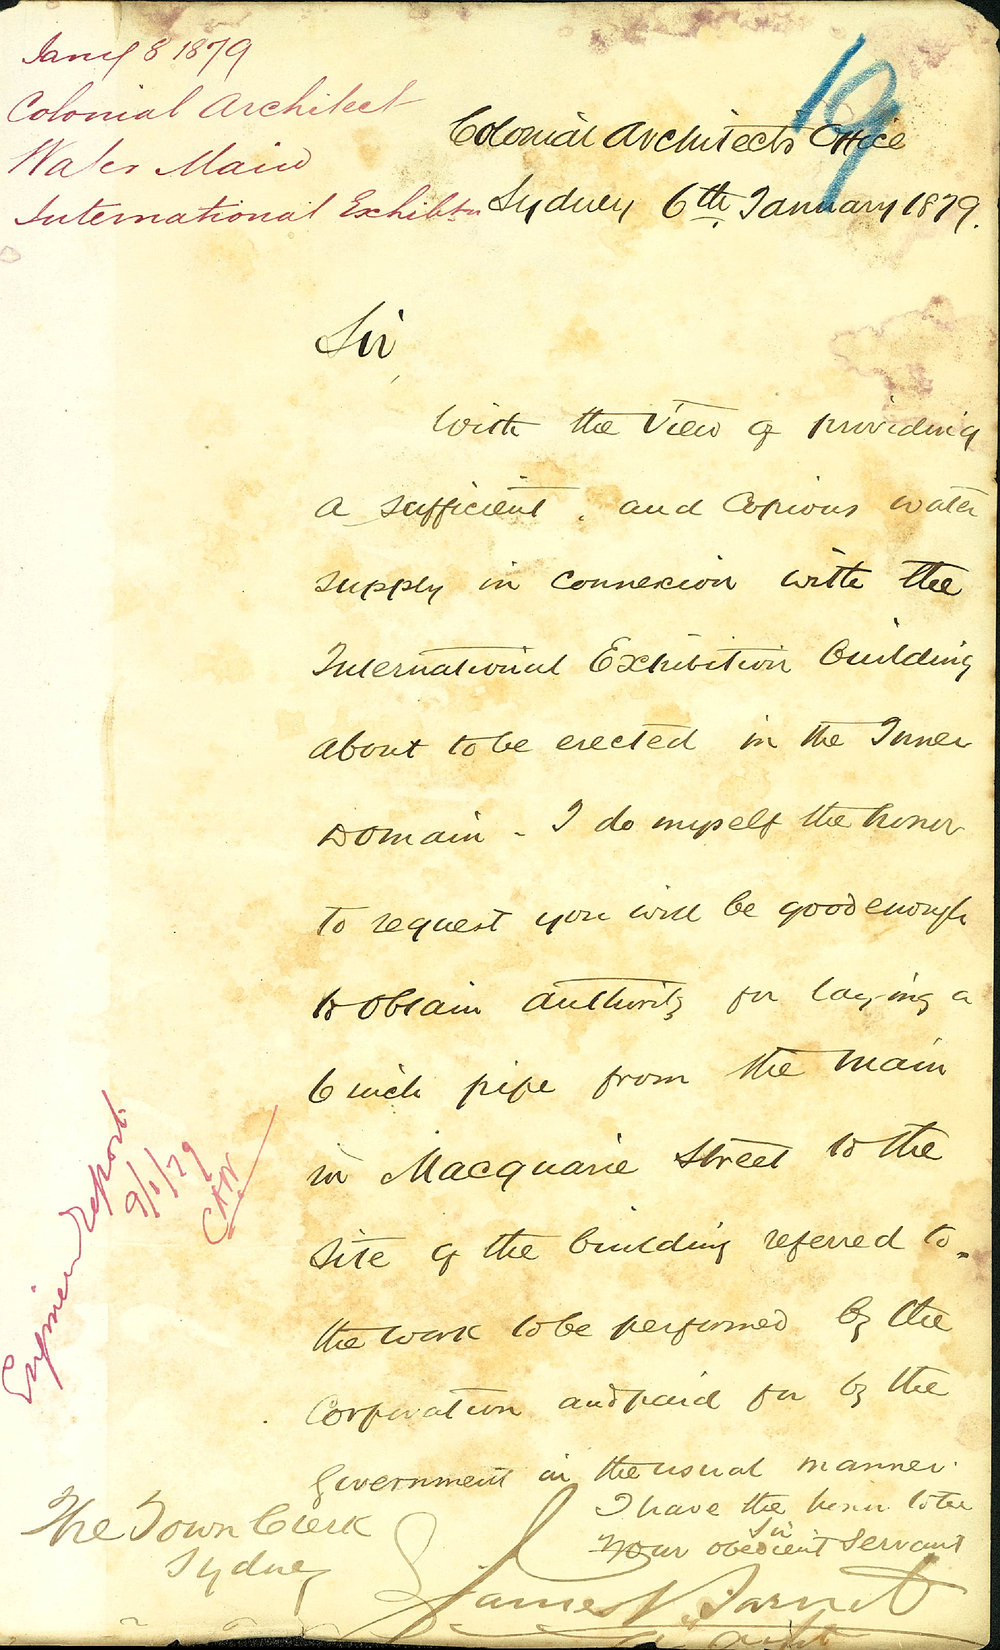 Jany 8 1879
Colonial Architect
Water Main
International Exhibtn
19
Colonial Architects Office
Sydney 6th January 1879.
Sir,
With the view of providing
a sufficient and copious water
supply in connexion with the
International Exhibition building
about to be erected in the Inner
Domain - I do myself the honor
to request you will be good enough
to obtain authority for laying a
6 inch pipe from the main
in Macquarie Street to the
site of the building referred to -
the work to be performed by the
Corporation and paid for by the
Government in the usual manner.
I have the honor to be
Sir
Your obedient servant
James Barnet
Col Archt
The Town Clerk
Sydney
Engineer report
9/1/79
CHW